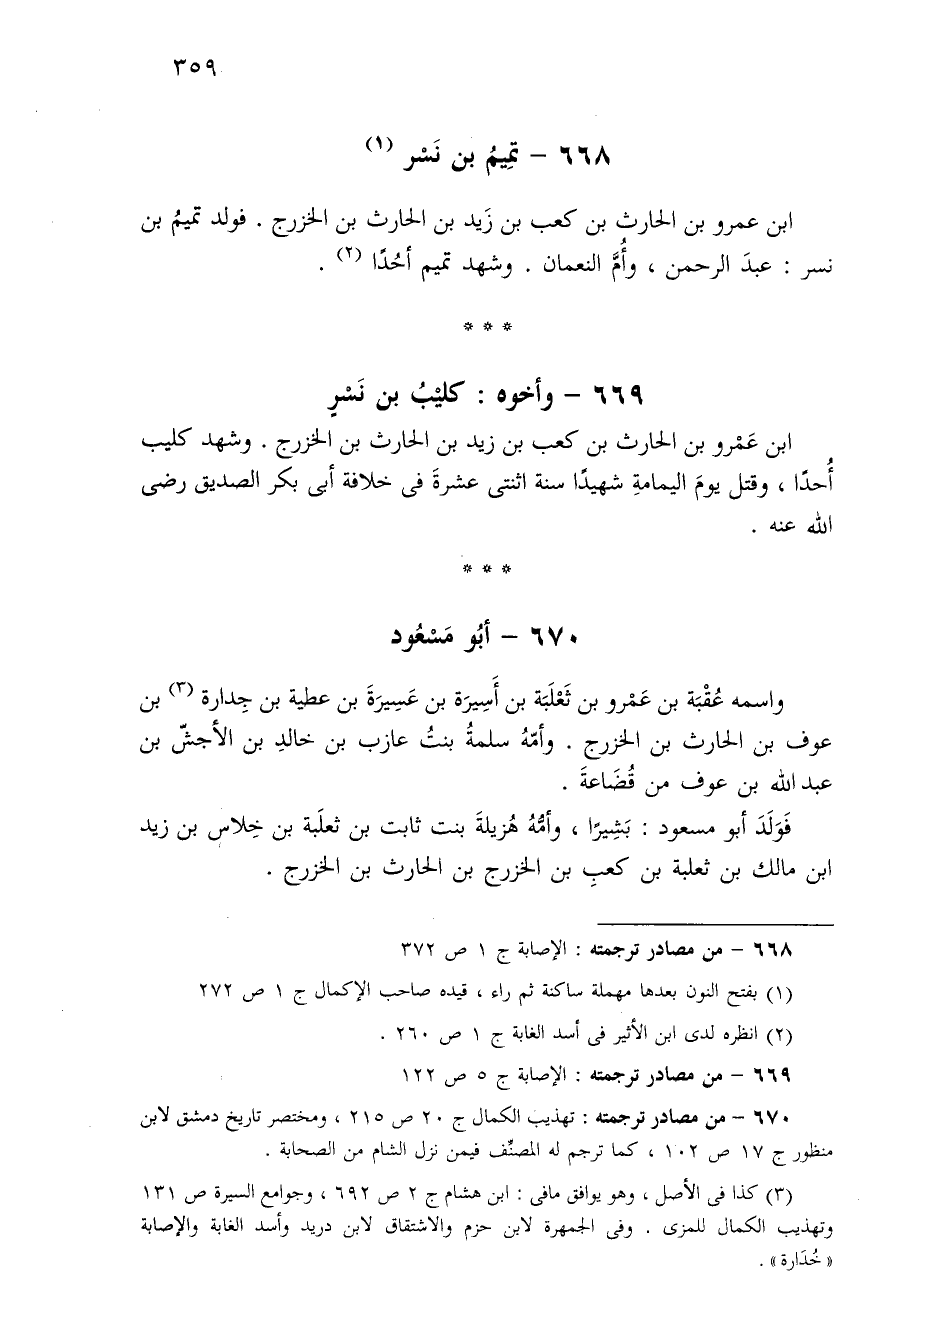 ٣٥٩
٦٦٨ – تمِيمُ بن نَسْر (١)
ابن عمرو بن الحارث بن كعب بن زَيد بن الحارث بن الخزرج . فولد تميمُ بن
نسر : عبدَ الرحمن ، وأُمَّ النعمان . وشهد تميم أُحُدًا (٢) .
* * *
٦٦٩ – وأخوه : كليْبُ بن نَسْرٍ
ابن عَمْرو بن الحارث بن كعب بن زيد بن الحارث بن الخزرج . وشهد كليب
أُحدًا ، وقتل يومَ اليمامةِ شهيدًا سنة اثنتى عشرةَ فى خلافة أبى بكر الصديق رضى
الله عنه .
* * *
٦٧٠ – أبُو مَسْعُود
واسمه عُقْبَة بن عَمْرو بن ثَعْلَبَة بن أَسِيرَة بن عَسِيرَةَ بن عطية بن جِدارة (٣) بن
عوف بن الحارث بن الخزرج . وأمّهُ سلمةُ بنتُ عازب بن خالدِ بن الأجشّ بن
عبد الله بن عوف من قُضَاعةَ .
فَوَلَدَ أبو مسعود : بَشِيرًا ، وأمُّهُ هُزيلةَ بنت ثابت بن ثعلَبة بن خِلاس بن زيد
ابن مالك بن ثعلبة بن كعبِ بن الخزرج بن الحارث بن الخزرج .
٦٦٨ – من مصادر ترجمته : الإصابة ج ١ ص ٣٧٢
(١) بفتح النون بعدها مهملة ساكنة ثم راء ، قيده صاحب الإكمال ج ١ ص ٢٧٢
(٢) انظره لدى ابن الأثير فى أسد الغابة ج ١ ص ٢٦٠ .
٦٦٩ – من مصادر ترجمته : الإصابة ج ٥ ص ١٢٢
٦٧٠ – من مصادر ترجمته : تهذيب الكمال ج ٢٠ ص ٢١٥ ، ومختصر تاريخ دمشق لابن
منظور ج ١٧ ص ١٠٢ ، كما ترجم له المصنِّف فيمن نزل الشام من الصحابة .
(٣) كذا فى الأصل ، وهو يوافق مافى : ابن هشام ج ٢ ص ٦٩٢ ، وجوامع السيرة ص ١٣١
وتهذيب الكمال للمزى . وفى الجمهرة لابن حزم والاشتقاق لابن دريد وأسد الغابة والإصابة
« خُدَارة » .